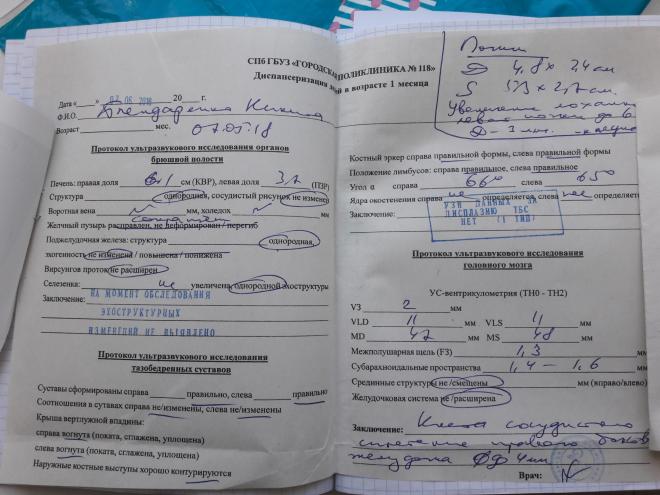 СПб ГБУЗ «ГОРОДСКАЯ ПОЛИКЛИНИКА № 118»
Диспансеризация детей в возрасте 1 месяца
Дата « » 07 06 2018 20 г.
Ф.И.О. Никита
Возраст мес. 07.05.18
Протокол ультразвукового исследования органов
брюшной полости
Печень: правая доля см (КВР), левая доля (ПЗР)
Структура однородная, сосудистый рисунок не изменен
Воротная вена мм, холедох мм
Желчный пузырь расправлен, не деформирован / перегиб
Поджелудочная железа: структура однородная,
эхогенность не изменена / повышена / понижена
Вирсунгов проток не расширен
Селезенка: не увеличена, однородной эхоструктуры
Заключение: НА МОМЕНТ ОБСЛЕДОВАНИЯ
ЭХОСТРУКТУРНЫХ
ИЗМЕНЕНИЙ НЕ ВЫЯВЛЕНО
Протокол ультразвукового исследования
тазобедренных суставов
Суставы сформированы справа правильно, слева правильно
Соотношения в суставах справа не/изменены, слева не/изменены
Крыша вертлужной впадины:
справа вогнута (поката, сглажена, уплощена)
слева вогнута (поката, сглажена, уплощена)
Наружные костные выступы хорошо контурируются
Почки
D 4,8 x 2,4 см
S x см.
Увеличение лоханки
левой почки до 6
D - 3 мм.
Костный эркер справа правильной формы, слева правильной формы
Положение лимбусов: справа правильное, слева правильное
Угол α справа 66° слева 65°
Ядра окостенения справа не определяется, слева не определяется
Заключение: УЗИ ДАННЫХ ЗА
ДИСПЛАЗИЮ ТБС
НЕТ (I ТИП)
Протокол ультразвукового исследования
головного мозга
УС-вентрикулометрия (ТН0 - ТН2)
V3 2 мм
VLD 11 мм VLS 11 мм
MD 47 мм MS 48 мм
Межполушарная щель (F3) 1,3 мм
Субарахноидальные пространства 1,4 - 1,6 мм
Срединные структуры не /смещены мм (вправо/влево)
Желудочковая система не /расширена
Заключение: Киста сосудистого
сплетения правого боков
желудочка 4 мм
Врач: